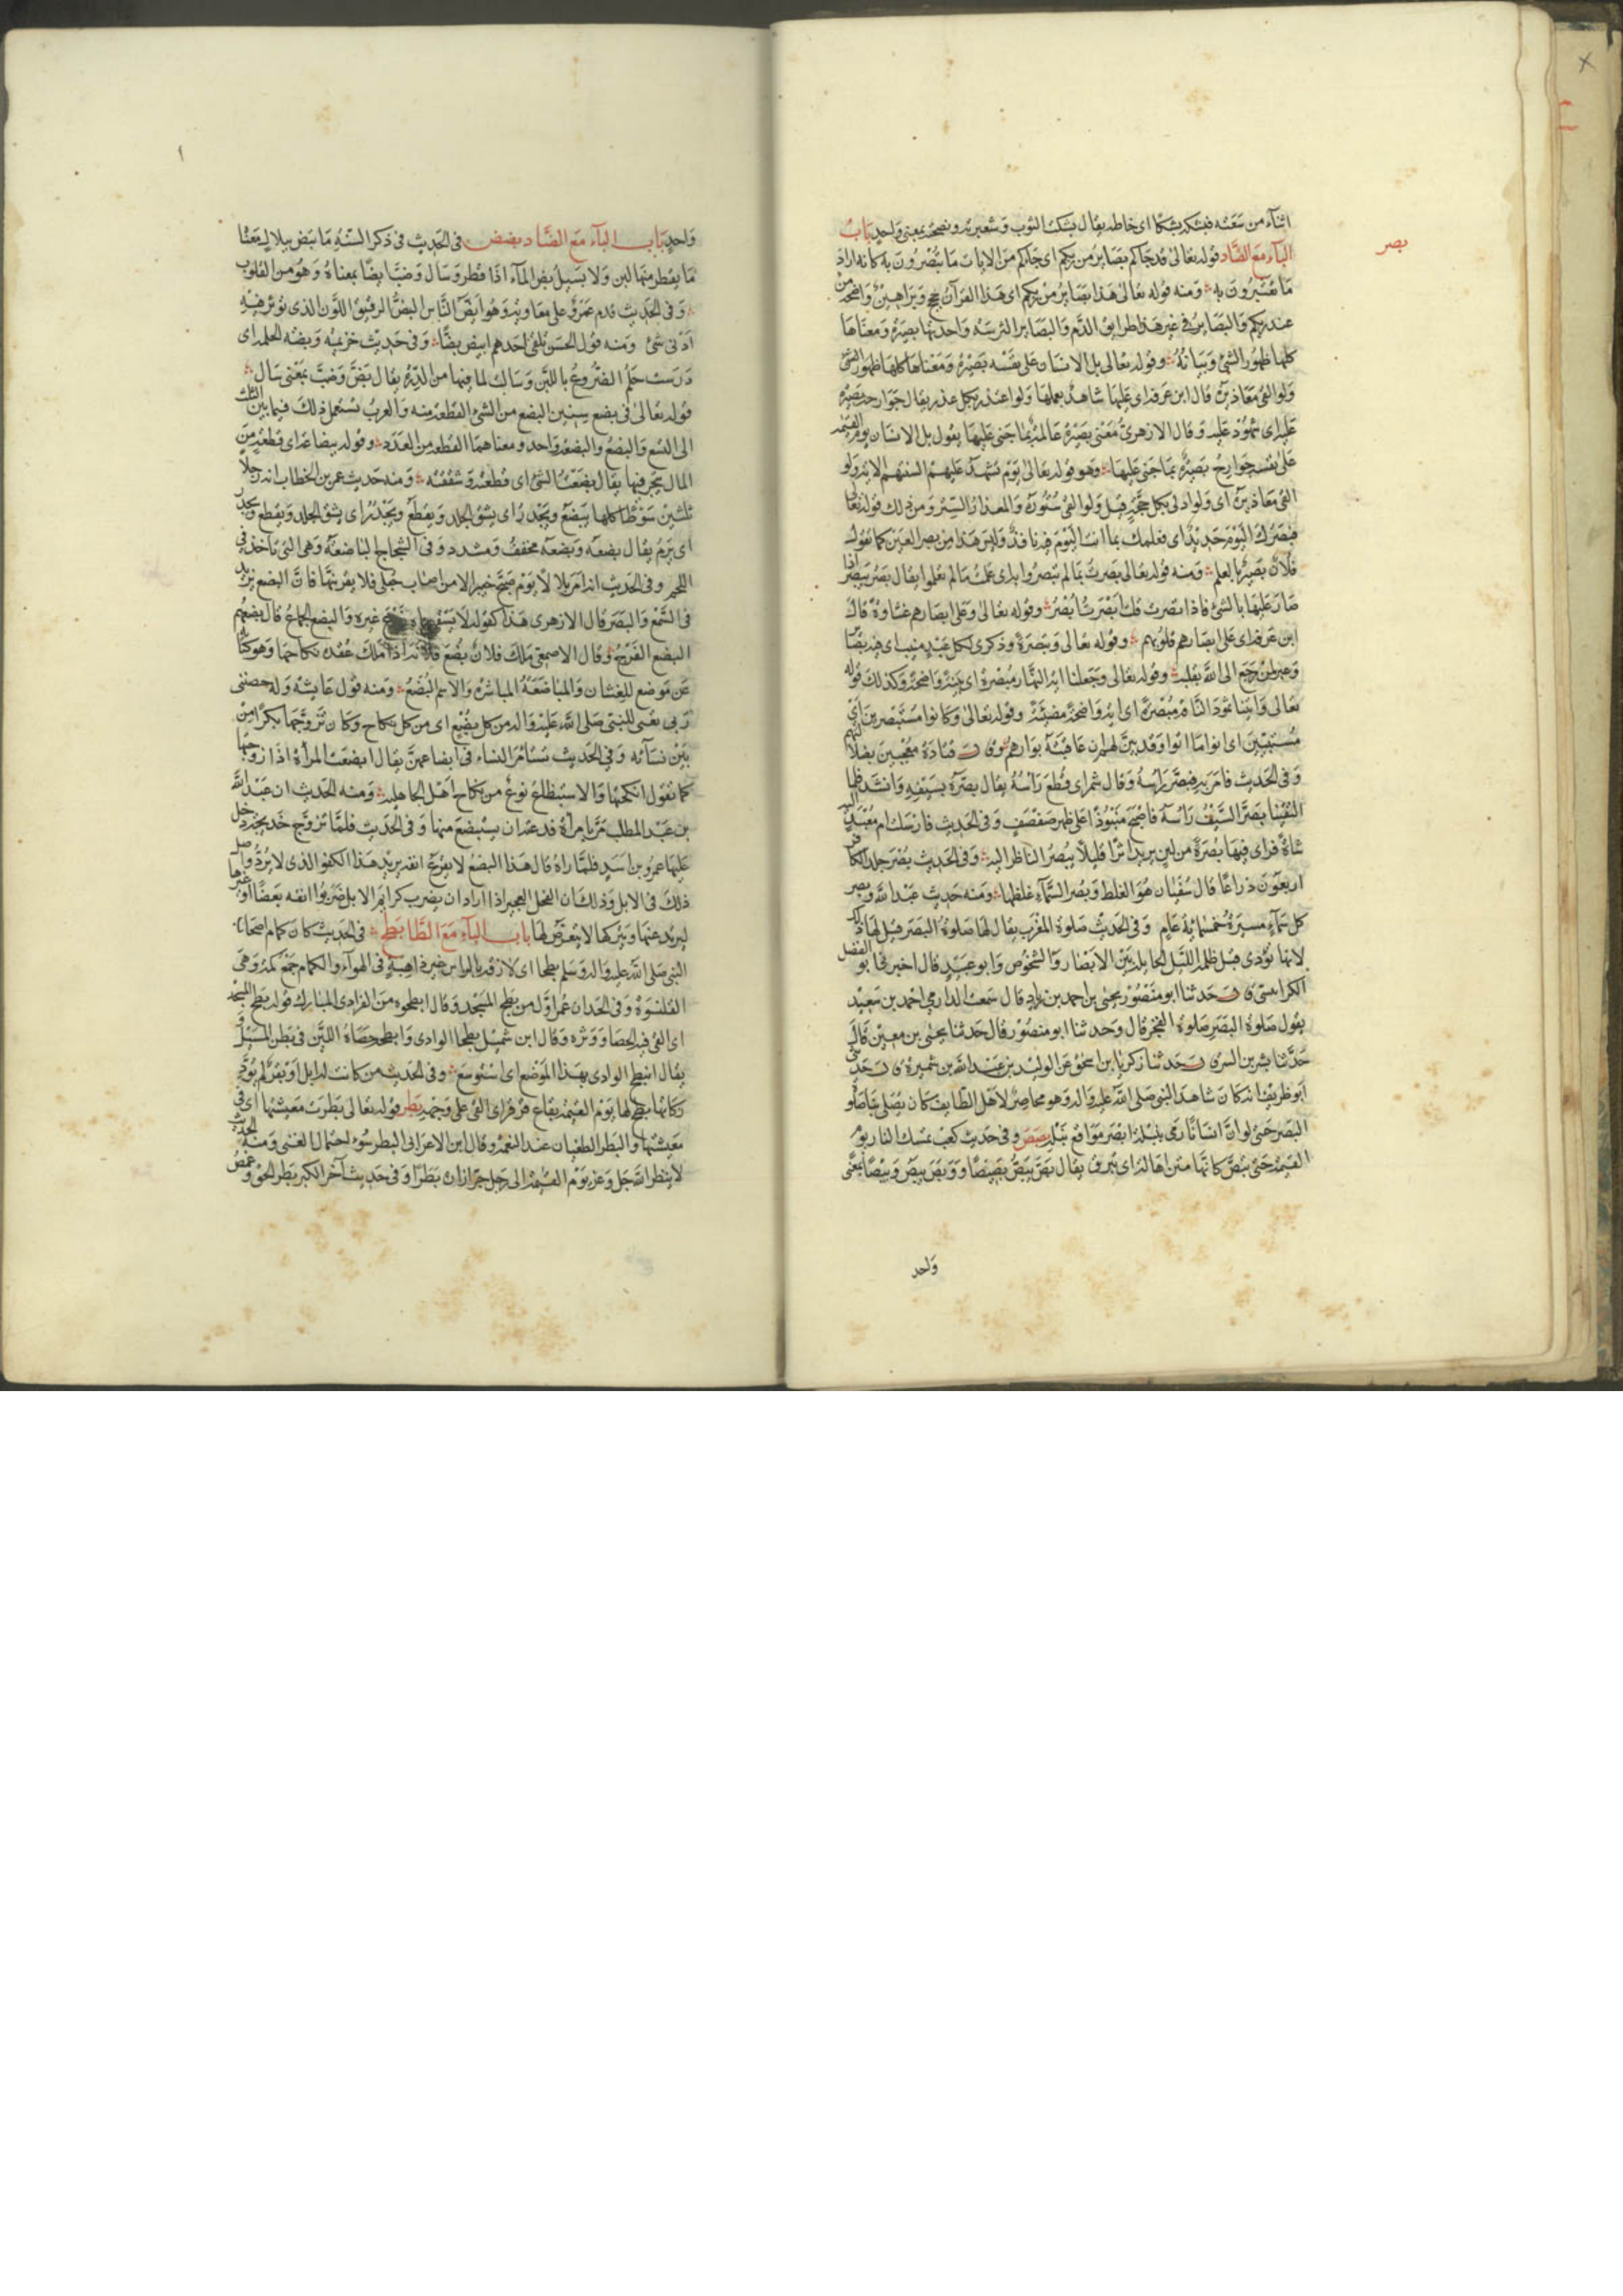 اثناء من سعته فبشكه بشكا اى خاطه يقال بشكت الثوب وشعبرته ونصحته بمعنى واحد باب
بصر
الباء مع الصاد قوله تعالى قد جاكم بصاير من ربكم اى جاكم من الايات ما تبصرون به كانه اراد
ما تعتبرون به ومنه قوله تعالى هذا بصاير من ربكم اى هذا القرآن حجج وبراهين واضحة من
عند ربكم والبصاير فى غير هذا طرايق الدم والبصاير الترسه واحدتها بصيرة ومعناها
كلها ظهور الشئ وبيانه وقوله تعالى بل الانسان على نفسه بصيرة ومعناها كلها ظهور الشئ
ولو القى معاذيره قال ابن عرفه اى عليها شاهد بعملها ولو اعتذر بكل عذر يقال جوارحه بصيرة
عليه اى شهود عليه وقال الازهرى معنى بصيرة عالمة بما جنى عليها يقول بل الانسان يوم القيمة
على نفسه جوارح بصيرة بما جنى عليها وهو قوله تعالى يوم تشهد عليهم السنتهم الايه ولو
القى معاذيره اى ولو ادلى بكل حجة قيل ولو القى ستوره والمعذار الستر ومن ذلك قوله تعالى
فبصرك اليوم حديد اى فعلمك بما انت اليوم فيه نافذ وليس هذا من بصر العين كما تقول
فلان بصير بالعلم ومنه قوله تعالى بصرت بما لم تبصروا به اى علمت ما لم تعلموا يقال بصر يبصر اذا
صار عليها بالشئ فاذا نصرت قلت ابصرت ابصر وقوله تعالى وعلى ابصارهم غشاوة قال
ابن عرفه اى على ابصارهم قلوبهم وقوله تعالى وتبصرة وذكرى لكل عبد منيب اى فيه تبصر
وعبر لمن رجع الى الله بقلبه وقوله تعالى وجعلنا اية النهار مبصرة اى بينة واضحة وكذلك قوله
تعالى واتينا ثمود الناقة مبصرة اى اية واضحة مضيئة وقوله تعالى وكانوا مستبصرين اى
مستبينين اى اتوا ما اتوا وقد بين لهم ان عاقبته بوارهم قتادة معجبين بضلالتهم
وفى الحديث فامر به فبصر رأسه وقال شمر اى قطع رأسه يقال بصره بسيفه وانشد فلما
التقينا بصر السيف رأسه فاصبح منبوذا على ظهر صفصف وفى الحديث فارسلت ام معبد اليه
شاة فراى فيها بصرة من لبن يريد اثرا قليلا يبصر الناظر اليه وفى الحديث بصر جلد الكافر
اربعون ذراعا قال سفيان هو الغلظ وبصر السماء غلظها ومنه حديث عبد الله وبصر
كل سماء مسيرة خمسمائة عام وفى الحديث صلوة المغرب يقال لها صلوة البصر قيل لها ذلك
لانها تؤدى قبل ظلمة الليل الحايلة بين الابصار والشخوص وابو عبيد قال اخبرنى ابو الفضل
الكرابيسى حدثنا ابو منصور يحيى بن احمد بن زياد قال سمعت الدارمى احمد بن سعيد
يقول صلوة البصر صلوة الفجر قال وحدثنا ابو منصور قال حدثنا يحيى بن معين قال
حدثنا بشر بن السرى حدثنا زكريا بن اسحق عن الوليد بن عبد الله بن شميرة حدثنى
ابو ظريف انه كان شاهد النبى صلى الله عليه واله وهو محاصر لاهل الطايف كان يصلى بنا صلوة
البصر حتى لو ان انسانا رمى بنبلة ابصر مواقع نبله بصص وفى حديث كعب تمسك النار يوم
القيمة حتى تبص كانها متن اهالة اى تبرق يقال بص يبص بصيصا ووبص يبص وبيصا بمعنى
واحد
واحد باب الباء مع الضاد بضض فى الحديث فى ذكر السنه ما تبض ببلال معنا
ما يقطر منها لبن ولا يسيل بض الماء اذا قطر وسال وضب ايضا بمعناه وهو من المقلوب
وفى الحديث قدم عمرو على معاويه وهو ابض الناس البض الرقيق اللون الذى يؤثر فيه
ادنى شئ ومنه قول الحسن تلقى احدهم ابيض بضا وفى حديث خزيمه وبضه الحلمه اى
درست حلم الضروع باللبن وسالت لما فيها من الدره يقال بض وضب بمعنى سال
قوله تعالى فى بضع سنين البضع من الشئ القطعه منه والعرب تستعمل ذلك فيما بين الثلث
الى التسع والبضع والبضعه واحد ومعناهما القطعه من العدد وقوله بضاعة اى قطعة من
المال يتجر فيها يقال بضعت الشئ اى قطعته وشققته ومنه حديث عمر بن الخطاب انه رجلا
ثلثين سوطا كلها يبضع ويحدر اى يشق الجلد ويقطع ويحدر اى يشق الجلد ويقطع ويحدر
اى يرم يقال بضعه وبضعه مخفف ومشدد وفى الشجاج الباضعة وهى التى تاخذ فى
اللحم وفى الحديث انه امر بلالا يوم صبح خيبر الا من اصاب حبلى فلا يقربنها فان البضع يزيد
فى السمع والبصر قال الازهرى هذا كقوله لا يسقى ماءه زرع غيره والبضع الجماع قال بعضهم
البضع الفرج وقال الاصمعى ملك فلان بضع فلانة اذا ملك عقدة نكاحها وهو كناية
عن موضع للغشيان والمباضعة المباشرة والاسم البضع ومنه قول عايشة وله حصننى
ربى تعنى للنبى صلى الله عليه واله من كل بضع اى من كل نكاح وكان تزوجها بكرا من
بين نسائه وفى الحديث تستامر النساء فى ابضاعهن يقال ابضعت المرأة اذا زوجتها
كما تقول انكحتها والاستبضاع نوع من نكاح اهل الجاهلية ومنه الحديث ان عبد الله
بن عبد المطلب مر بامرأة فدعته ان يستبضع منها وفى الحديث فلما تزوج خديجة دخل
عليها عمرو بن اسيد فلما راه قال هذا البضع لا يقرع انفه يريد هذا الكفو الذى لا يرد واصل
ذلك فى الابل وذلك ان الفحل الهجين اذا اراد ان يضرب كرايم الابل ضربوا انفه بعصا او غيرها
ليرتد عنها ويتركها لا يتعرض لها باب الباء مع الطا بطح فى الحديث كان كمام اصحاب
النبى صلى الله عليه واله وسلم بطحا اى لازقة بالراس غير ذاهبة فى الهواء والكمام جمع كمة وهى
القلنسوة وفى الحديث ان عمر اول من بطح المسجد وقال ابطحوه من الوادى المبارك قوله بطح المسجد
اى القى فيه الحصا ووثره وقال ابن شميل بطحا الوادى وابطحه حصاه اللين فى بطن المسيل
يقال انبطح الوادى بهذا الموضع اى استوسع وفى الحديث من كانت له ابل او بقر لم يؤد
زكاتها بطح لها يوم القيمة بقاع قرقر اى القى على وجهه بطر قوله تعالى بطرت معيشتها اى فى
معيشتها والبطر الطغيان عند النعمة وقال ابن الاعرابى البطر سوء احتمال الغنى ومنه الحديث
لا ينظر الله جل وعز يوم القيمة الى رجل جر ازاره بطرا وفى حديث آخر الكبر بطر الحق وغمص